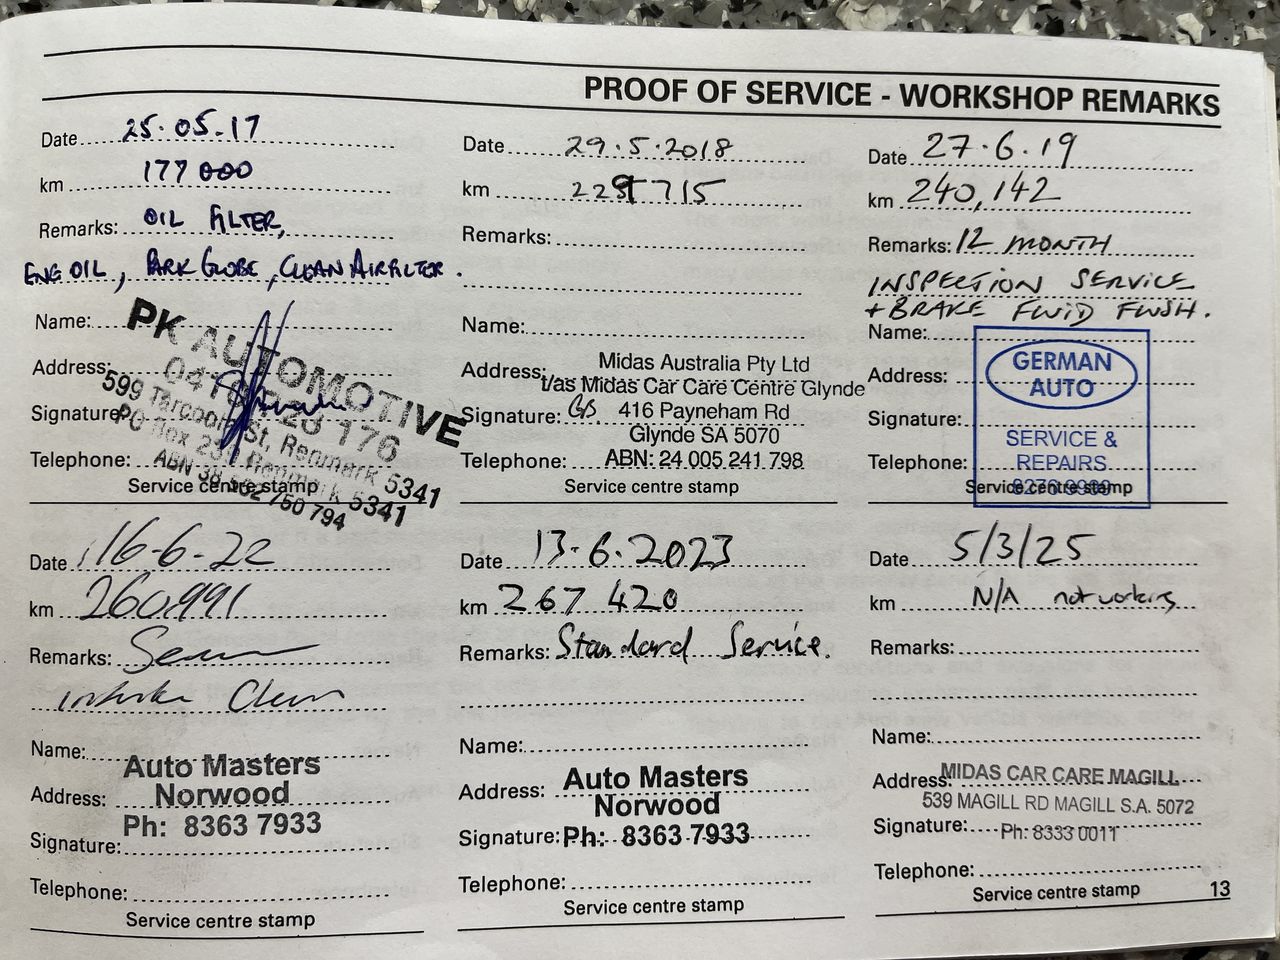 PROOF OF SERVICE - WORKSHOP REMARKS
Date 25.05.17
km 177 000
Remarks: OIL FILTER,
ENG OIL, PARK GLOBE, CLEAN AIRFILTER.
Name:
Address:
Signature:
Telephone:
PK AUTOMOTIVE
176
599 St, Renmark 5341
PO Box Renmark 5341
ABN 750 794
Service centre stamp
Date 29.5.2018
km 715
Remarks:
Name:
Address:
Signature:
Telephone:
Midas Australia Pty Ltd
t/as Midas Car Care Centre Glynde
416 Payneham Rd
Glynde SA 5070
ABN: 24 005 241 798
Service centre stamp
Date 27.6.19
km 240,142
Remarks: 12 MONTH
INSPECTION SERVICE
+ BRAKE FLUID FLUSH.
Name:
Address:
Signature:
Telephone:
GERMAN
AUTO
SERVICE &
REPAIRS
Service centre stamp
Date 16-6-22
km 260,991
Remarks:
Clean
Name:
Address:
Signature:
Telephone:
Auto Masters
Norwood
Ph: 8363 7933
Service centre stamp
Date 13.6.2023
km 267 420
Remarks: Standard Service.
Name:
Address:
Signature:
Telephone:
Auto Masters
Norwood
Ph: 8363 7933
Service centre stamp
Date 5/3/25
km N/A not working
Remarks:
Name:
Address:
Signature:
MIDAS CAR CARE MAGILL
539 MAGILL RD MAGILL S.A. 5072
Ph: 8333 0011
Service centre stamp
13